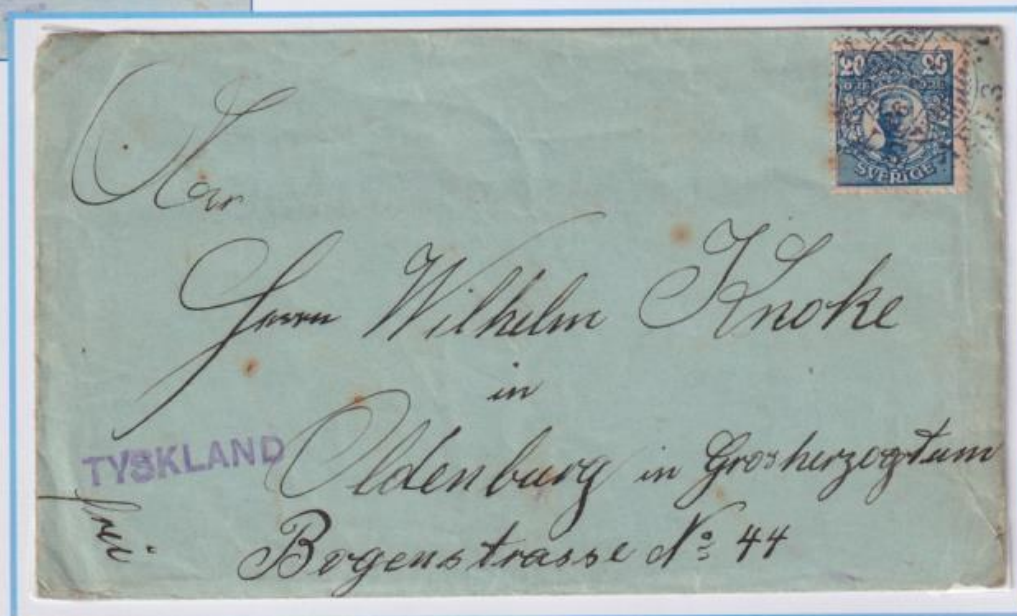 20 20
SVERIGE
Herrn Wilhelm Knoke
in
TYSKLAND
Oldenburg in Grosherzogtum
frei
Bogenstrasse No 44